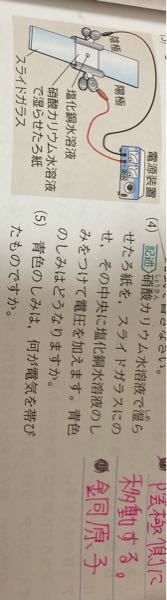 陰極
陽極
電源装置
塩化銅水溶液
硝酸カリウム水溶液
で湿らせたろ紙
スライドガラス
(4) 記述 硝酸カリウム水溶液で湿ら
せたろ紙を、スライドガラスにの
せ、その中央に塩化銅水溶液のし
みをつけて電圧を加えます。青色
のしみはどうなりますか。
(5) 青色のしみは、何が電気を帯び
たものですか。
陰極側に
移動する。
銅原子